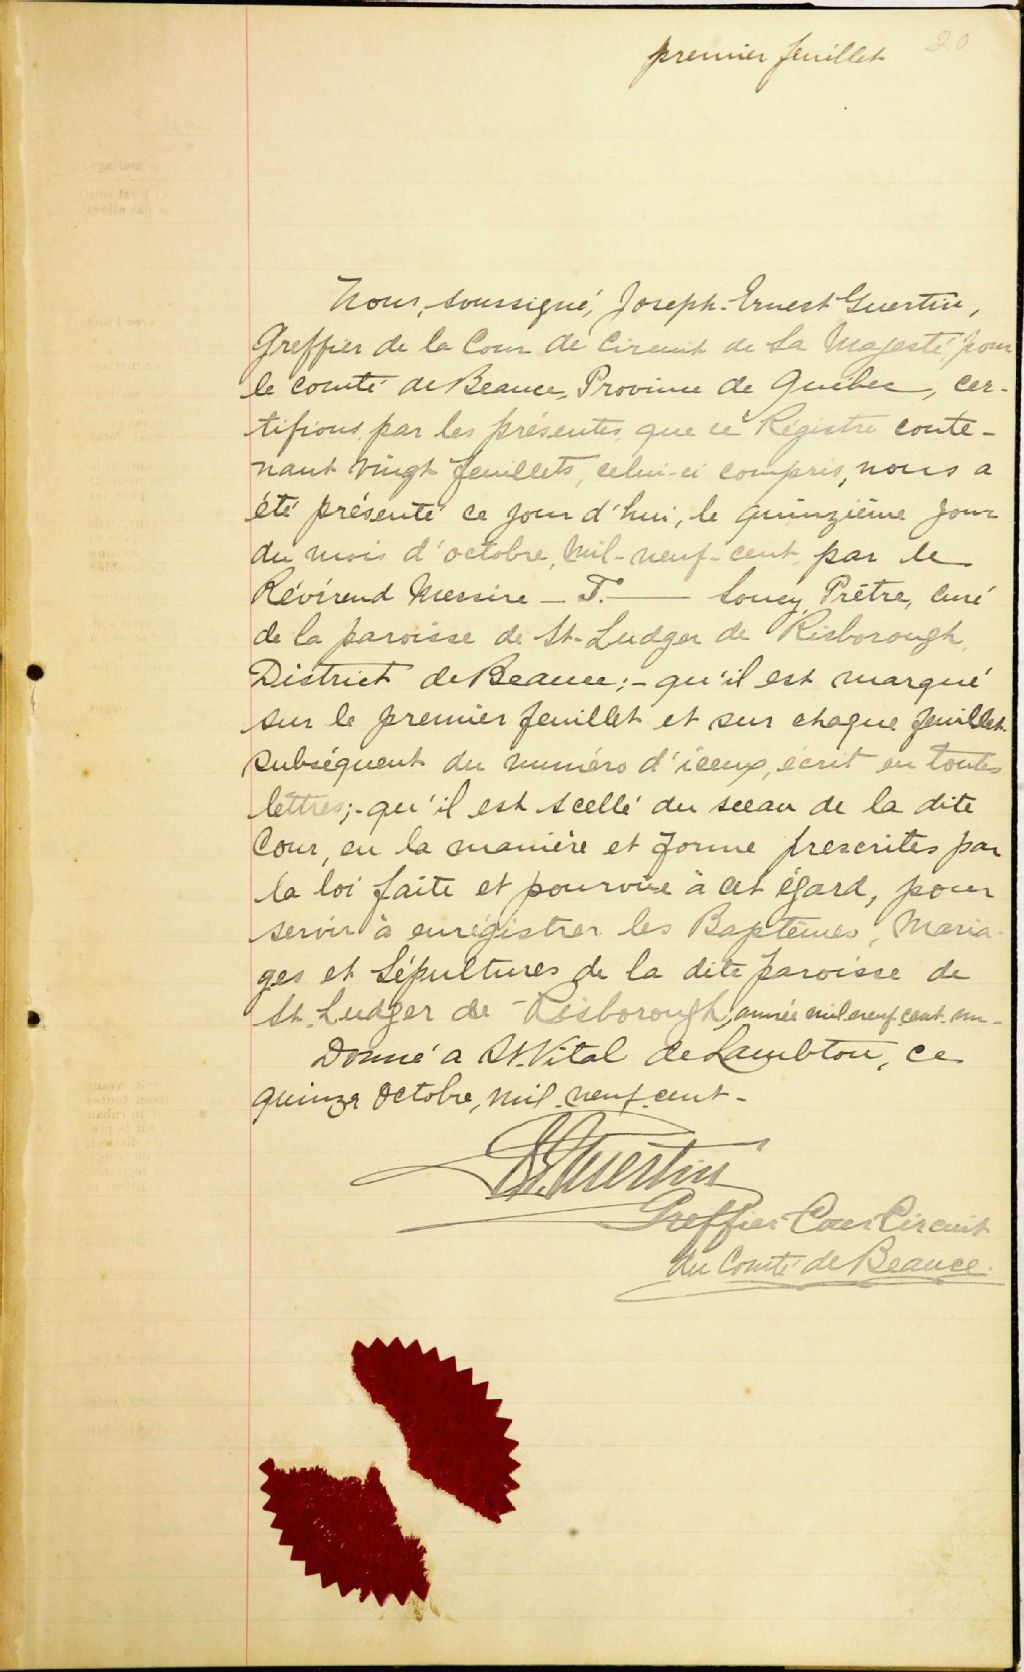 premier feuillet 20
Nous, soussigné, Joseph-Ernest Guertin,
Greffier de la Cour de Circuit de Sa Majesté pour
le comté de Beauce, Province de Québec, cer-
tifions par les présentes que ce Régistre conte-
nant vingt feuillets, celui-ci compris, nous a
été présenté ce jour d'hui, le quinzième jour
du mois d'octobre, mil-neuf-cent par le
Révérend Messire - T. — Soucy, Prêtre, curé
de la paroisse de St-Ludger de Risborough,
District de Beauce;- qu'il est marqué
sur le premier feuillet et sur chaque feuillet
subséquent du numéro d'iceux, écrit en toutes
lettres;- qu'il est scellé du sceau de la dite
Cour, en la manière et forme prescrites par
la loi faite et pourvue à cet égard, pour
servir à enrégistrer les Baptêmes, Maria-
ges et Sépultures de la dite paroisse de
St. Ludger de Risborough, année mil neuf cent un-
Donné a St. Vital de Lambton, ce
quinze Octobre, mil. neuf. cent-
Guertin
Greffier Cour Circuit
du Comté de Beauce.